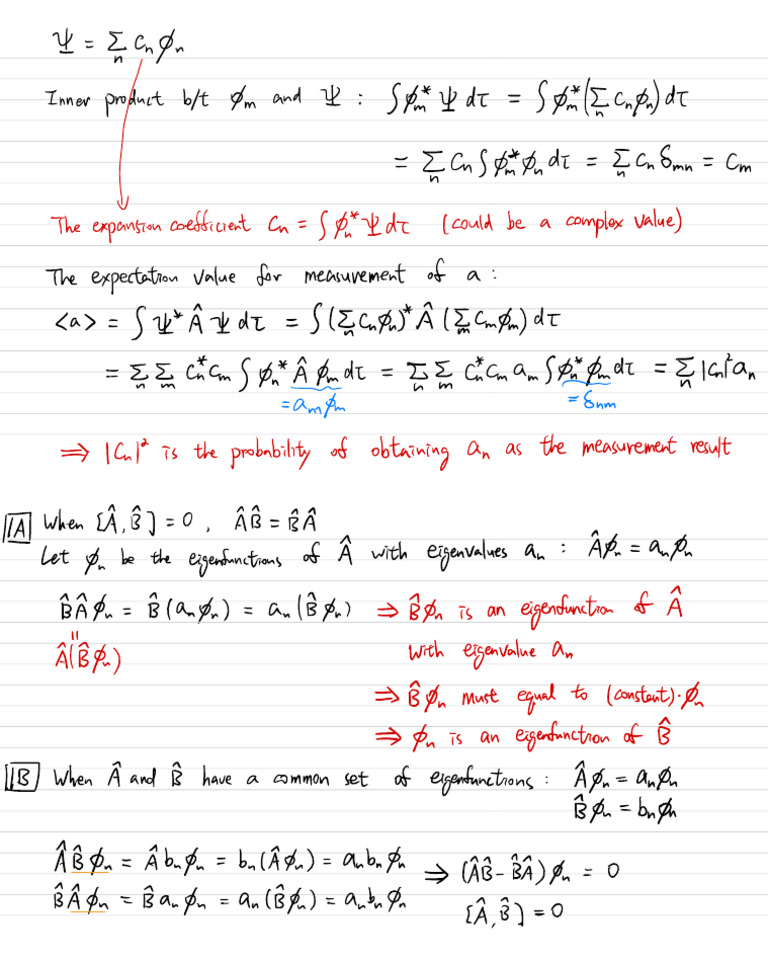 Ψ = Σₙ cₙ φₙ
Inner product b/t φₘ and Ψ : ∫φₘ* Ψ dτ = ∫φₘ*(Σₙ cₙφₙ)dτ
= Σₙ cₙ ∫φₘ*φₙ dτ = Σₙ cₙ δₘₙ = cₘ
The expansion coefficient cₙ = ∫φₙ*Ψdτ (could be a complex value)
The expectation value for measurement of a :
<a> = ∫Ψ* Â Ψ dτ = ∫(Σₙ cₙφₙ)* Â (Σₘ cₘφₘ) dτ
= Σₙ Σₘ cₙ*cₘ ∫φₙ* Â φₘ dτ = Σₙ Σₘ cₙ*cₘ aₘ ∫φₙ*φₘ dτ = Σₙ |cₙ|² aₙ
=aₘφₘ =δₙₘ
⇒ |cₙ|² is the probability of obtaining aₙ as the measurement result
1A When [Â, B̂] = 0 , ÂB̂ = B̂Â
Let φₙ be the eigenfunctions of Â with eigenvalues aₙ : Âφₙ = aₙφₙ
B̂Âφₙ = B̂(aₙφₙ) = aₙ(B̂φₙ) ⇒ B̂φₙ is an eigenfunction of Â
=
Â(B̂φₙ) with eigenvalue aₙ
⇒ B̂φₙ must equal to (constant)·φₙ
⇒ φₙ is an eigenfunction of B̂
1B When Â and B̂ have a common set of eigenfunctions : Âφₙ = aₙφₙ
B̂φₙ = bₙφₙ
ÂB̂φₙ = Âbₙφₙ = bₙ(Âφₙ) = aₙbₙφₙ ⇒ (ÂB̂ - B̂Â)φₙ = 0
B̂Âφₙ = B̂aₙφₙ = aₙ(B̂φₙ) = aₙbₙφₙ [Â, B̂] = 0